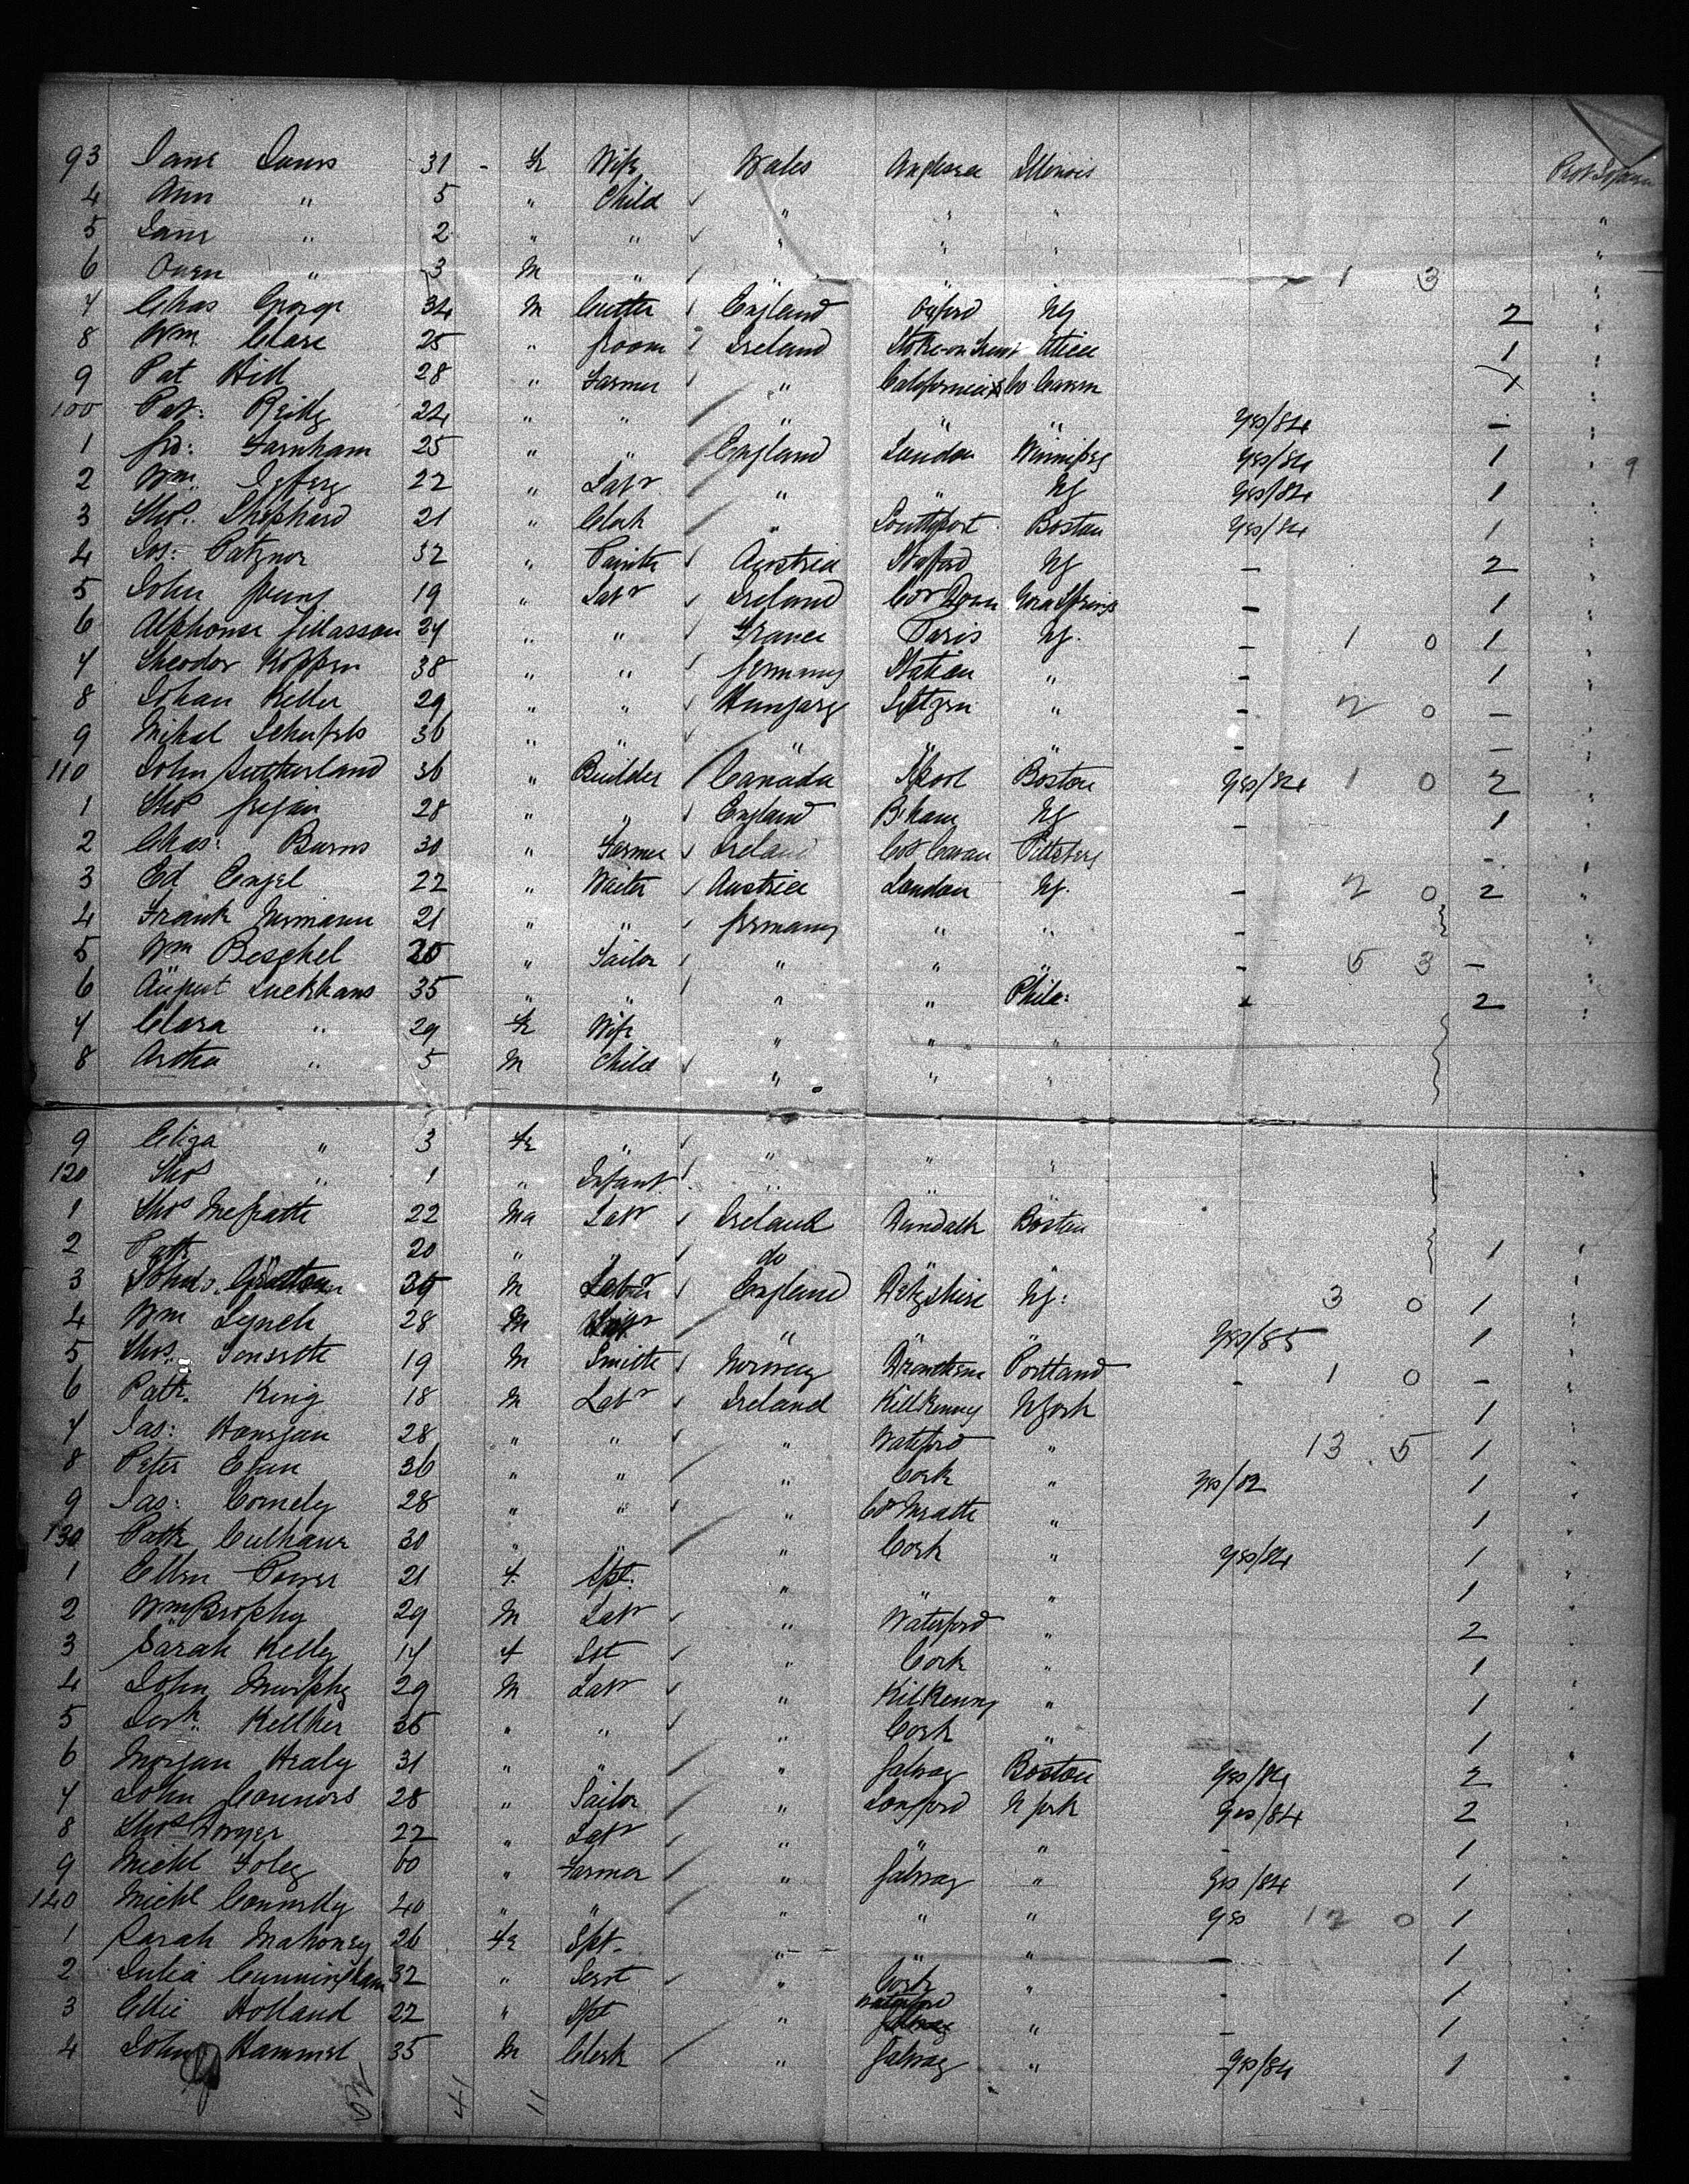 93 Jane Davis 31 - Fe Wife Wales Anglesea Illinois
4 Ann " 5 " Child ✓ " " " "
5 Jane " 2 " " ✓ " " " "
6 Owen " 3 M " ✓ " 1 3 "
7 Chas George 34 M Cutter ✓ England Oxford NY 2 "
8 Wm Clare 25 " Groom Ireland Stoke-on-Trent Utica 1 "
9 Pat Hill 28 " Farmer ✓ " California Co Cavan 1 "
100 Pat: Reilly 24 " " " " " yes/84 - "
1 Farnham 25 " " England London Winnipeg yes/84 1 " 9
2 Wm. 22 " Labr " " NY yes/84 1 "
3 Thos. Shephard 21 " Clerk " Southport Boston yes/84 1 "
4 Jos: Patznor 32 " Painter ✓ Austria Stafford NY - 2 "
5 John Young 19 " Labr ✓ Ireland Co Down - 1 "
6 Alphonse 24 " " ✓ France Paris NY. - 1 0 1 "
7 Theodor Koppen 38 " " ✓ Germany " - 1 "
8 Johan Keller 29 " " ✓ Hungary " - 2 0 - "
9 Mikal 36 " " ✓ " " " - - "
110 John Sutherland 36 " Builder Canada Lpool Boston yes/84 1 0 2 "
1 Thos 28 " " ✓ England B'ham NY - 1 "
2 Chas: Burns 30 " Farmer ✓ Ireland Co Cavan Pittsberg - "
3 Ed Engel 22 " Waiter ✓ Austria London NY. - 2 0 2 "
4 Frank 21 " " ✓ Germany " " - "
5 Wm Beschel 25 " Sailor ✓ " " " - 5 3 - "
6 August Luckhaus 35 " " " " Phila: 2 "
7 Clara " 29 Fe Wife " " "
8 " 5 M Child ✓ " " "
9 Eliza " 3 Fe " ✓ " " "
120 Thos " 1 " Infant " " " "
1 Thos McGrath 22 Ma Labr ✓ Ireland Dundalk Boston
2 Patk 20 " " ✓ do " " 1 "
3 John 39 M Labr ✓ England NY: 3 0 1 "
4 Wm Lynch 28 M Labr " " " yes/85 1 "
5 Thos. 19 M Smith ✓ Norway Portland - 1 0 - "
6 Patk. King 18 M Labr ✓ Ireland Killkenny N York 1 "
7 Jas: 28 " " ✓ " Wateford " 13 5 1 "
8 Peter Egan 36 " " " Cork " yes/82 1 "
9 Jas: Comely 28 " " ✓ " Co Meath " 1 "
130 Patk Culhane 30 " " " Cork " yes/84 1 "
1 Ellen Power 21 F. Spt. " " " 1 "
2 Wm Brophy 29 M Labr ✓ " Waterford " 2 "
3 Sarah Kelly 17 F ✓ " Cork " 1 "
4 John Murphy 29 M Labr ✓ " Kilkenny " 1 "
5 Kelliher 35 " " ✓ " Cork " 1 "
6 Morgan Healy 31 " " " Galway Boston yes/84 2 "
7 John Connors 28 " Sailor " Longford N York yes/84 2 "
8 Thos Dwyer 22 " Labr ✓ " " " - 1 "
9 Michl Foley 60 " Farmer " Galway " yes/84 1 "
140 Michl Connolly 40 " " " " " yes 12 0 1 "
1 Sarah Mahoney 26 Fe Spt. " " " - 1 "
2 Julia Cunningham 32 " Servt ✓ " Cork " - 1 "
3 Ellie Holland 22 " Spt " Waterford " - 1 "
4 John Hammel 35 M Clerk " Galway " yes/84 1 "
52 41 11